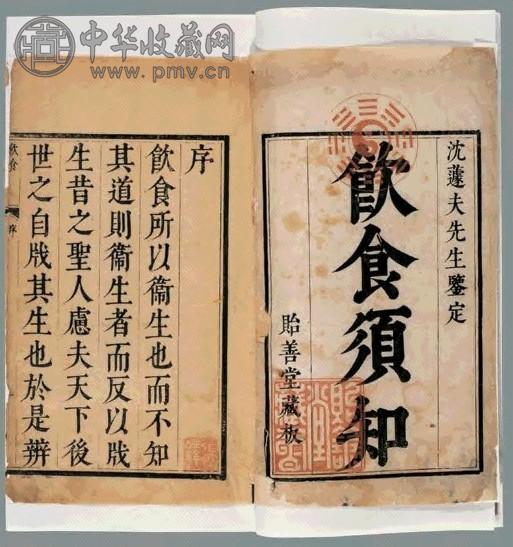 中华收藏网
www.pmv.cn
沈蘧夫先生鑒定
飲食須知
貽善堂藏板
序
飲食所以衞生也而不知
其道則衞生者而反以戕
生昔之聖人慮夫天下後
世之自戕其生也於是辨
飲食
序